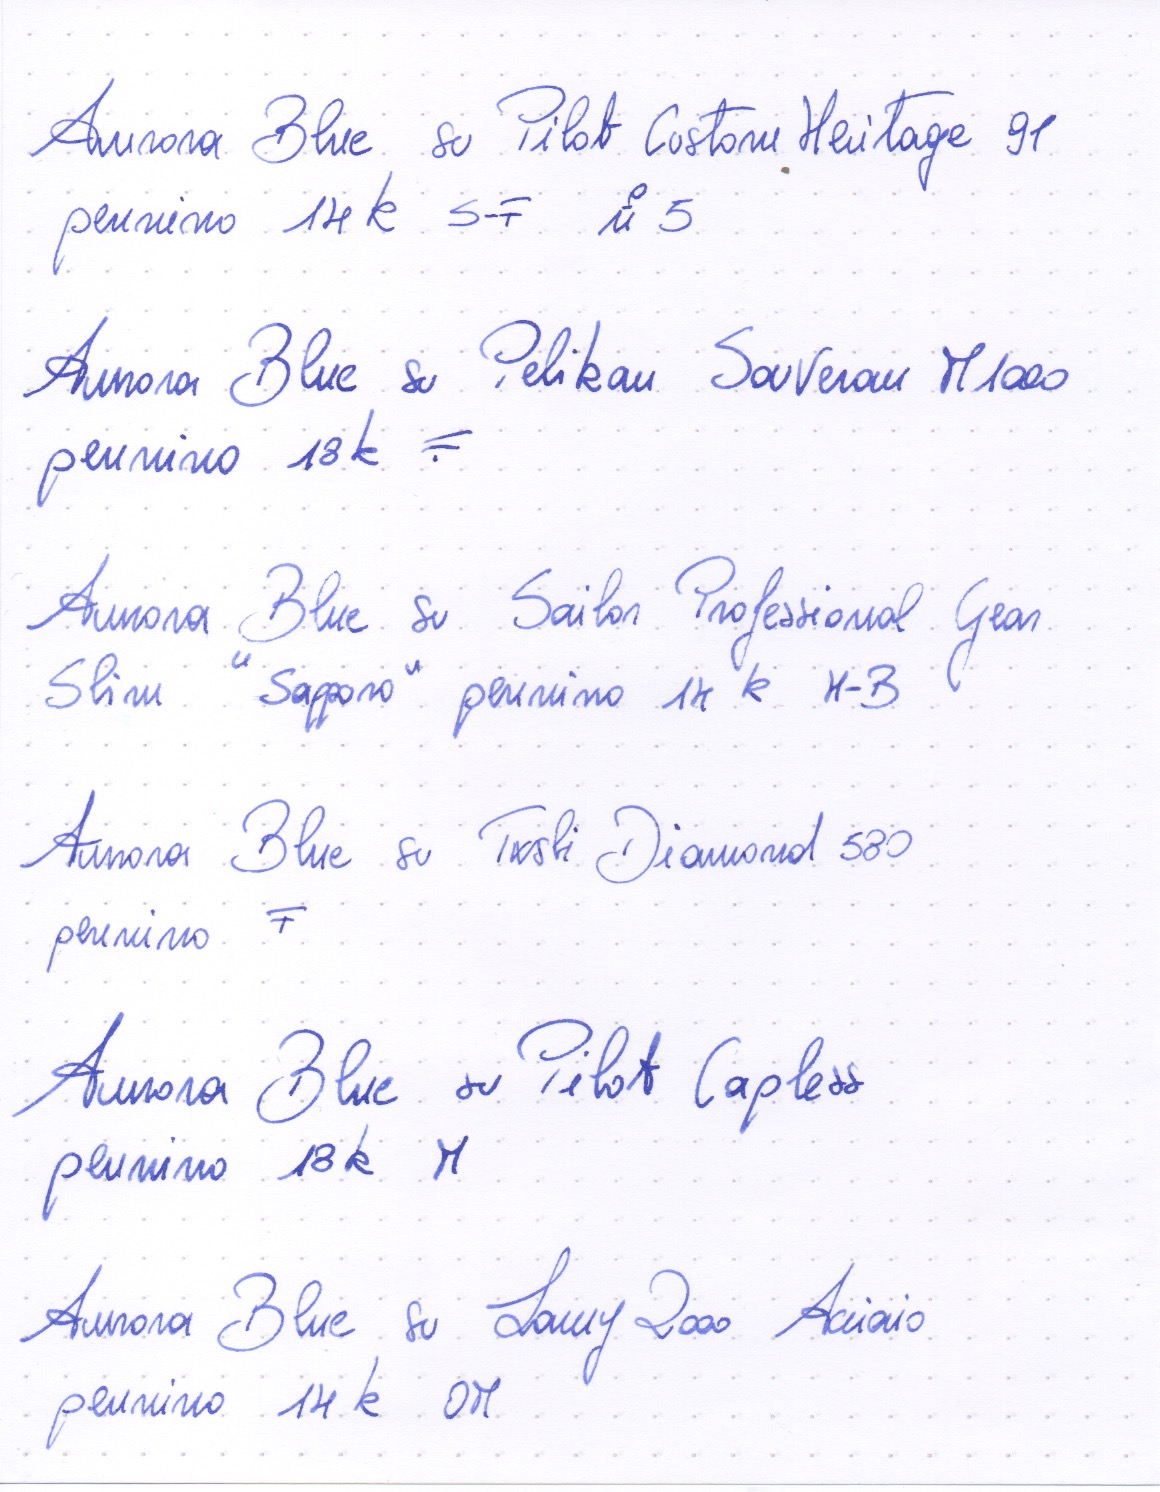 Aurora Blue su Pilot Custom Heritage 91
pennino 14k S-F n° 5
Aurora Blue su Pelikan Souveran M1000
pennino 18k F
Aurora Blue su Sailor Professional Gear
Slim "Sapporo" pennino 14k H-B
Aurora Blue su Twsbi Diamond 580
pennino F
Aurora Blue su Pilot Capless
pennino 18k M
Aurora Blue su Lamy 2000 Acciaio
pennino 14k OM